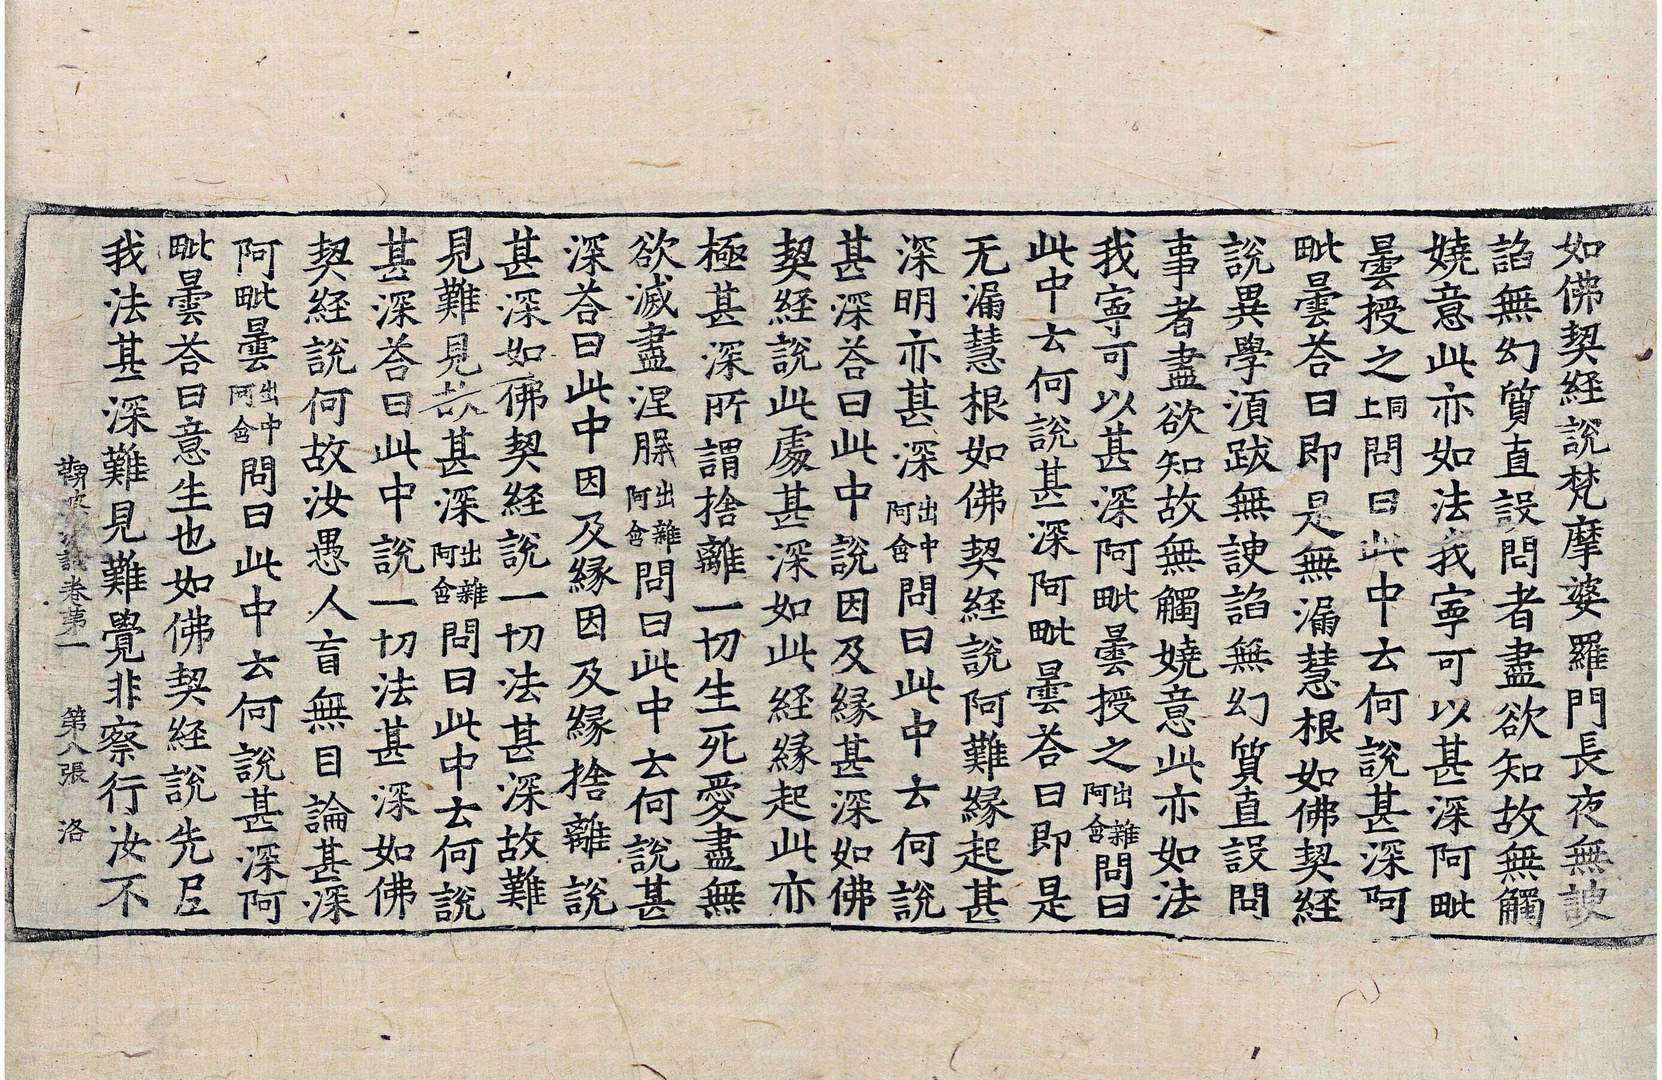 如佛契経說梵摩婆羅門長夜無諛
諂無幻質直設問者盡欲知故無觸
嬈意此亦如法我寧可以甚深阿毗
曇授之同上問曰此中去何說甚深阿
毗曇荅曰即是無漏慧根如佛契経
說異學湏跋無諛諂無幻質直設問
事者盡欲知故無觸嬈意此亦如法
我寧可以甚深阿毗曇授之出雜阿含問曰
此中去何說甚深阿毗曇荅曰即是
无漏慧根如佛契経說阿難緣起甚
深明亦甚深出中阿含問曰此中去何說
甚深荅曰此中說因及緣甚深如佛
契経說此處甚深如此経緣起此亦
極甚深所謂捨離一切生死愛盡無
欲滅盡涅槃出雜阿含問曰此中去何說甚
深荅曰此中因及緣因及緣捨離說
甚深如佛契経說一切法甚深故難
見難見故甚深出雜阿含問曰此中去何說
甚深荅曰此中說一切法甚深如佛
契経說何故汝愚人盲無目論甚深
阿毗曇出中阿含問曰此中去何說甚深阿
毗曇荅曰意生也如佛契経說先尼
我法甚深難見難覺非察行汝不
卷第一 第八張 洛